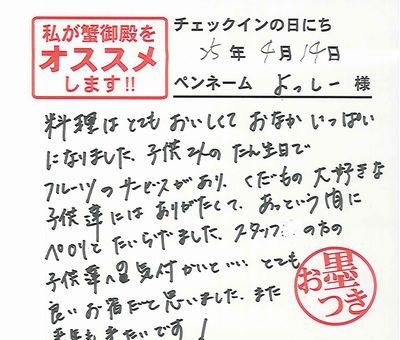 私が蟹御殿を
オススメ
します!!
チェックインの日にち
25年4月14日
ペンネーム よっしー 様
料理はとてもおいしくておなかいっぱい
になりました。子供2人のたん生日で
フルーツのサービスがあり、くだもの大好きな
子供達にはありがたくて、あっという間に
ペロリとたいらげました。スタッフの方の
子供達への気付かいと…、とても
良いお宿だと思いました。また
来年も来たいです!
お墨
つき